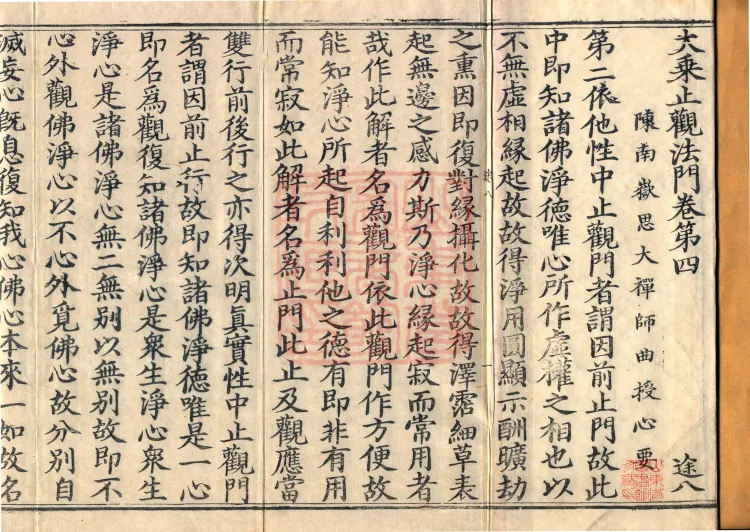 大乘止觀法門卷第四
途八
陳南嶽思大禪師曲授心要
第二依他性中止觀門者謂因前止門故此
中即知諸佛淨德唯心所作虛權之相也以
不無虛相緣起故故得淨用圓顯示酬曠劫
途八
之熏因即復對緣攝化故故得澤霑細草表
起無邊之感力斯乃淨心緣起寂而常用者
哉作此解者名爲觀門依此觀門作方便故
能知淨心所起自利利他之德有即非有用
而常寂如此解者名爲止門此止及觀應當
雙行前後行之亦得次明真實性中止觀門
者謂因前止行故即知諸佛淨德唯是一心
即名爲觀復知諸佛淨心是衆生淨心衆生
淨心是諸佛淨心無二無別以無別故即不
心外觀佛淨心以不心外覓佛心故分別自
滅妄心既息復知我心佛心本來一如故名